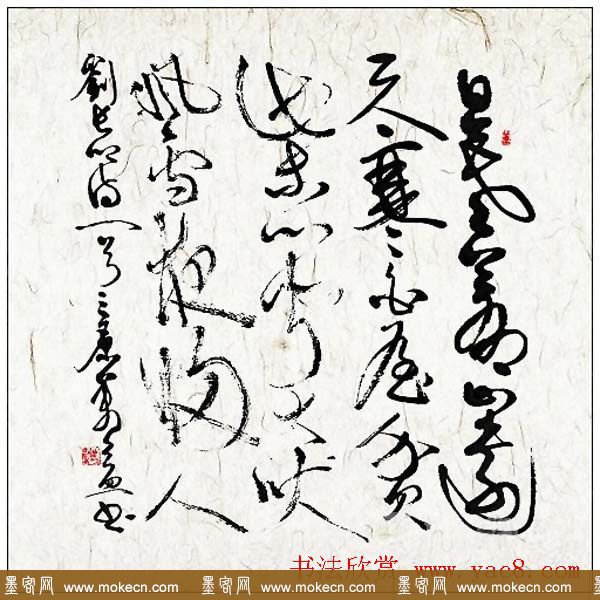 日暮蒼山遠
天寒白屋貧
柴門聞犬吠
風雪夜歸人
劉長卿詩一首
书法欣赏 www.yac8.com
墨客网 www.mokecn.com 墨客网 www.mokecn.com 墨客网 www.mokecn.com